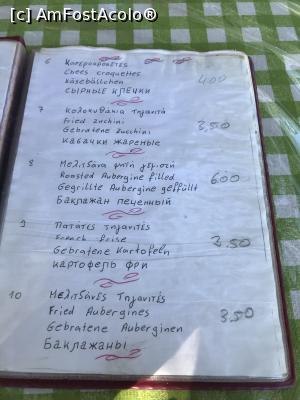 [c] AmFostAcolo®
6 Καερροκροκετες
Chees croquettes 4.00
Käsebällchen
СЫРНЫЕ КЛЕЧКИ
7 Κολοκυθακια τηγανιτά
Fried zuchini
Gebratene zucchini 3,50
КАБАЧКИ ЖАРЕНЫЕ
8 Μελιτζάνα ψητή γεμιστή
Roasted Aubergine filled 6.00
Gegrillte Aubergine gefüllt
Баклажан печенный
9 Πατάτες τηγανιτές
French frise
Gebratene Kartofeln 2.50
КАРТОФЕЛЬ ФРИ
10 Μελιτζάνες Τηγανιτές
Fried Aubergines 3.50
Gebratene Auberginen
Баклажаны